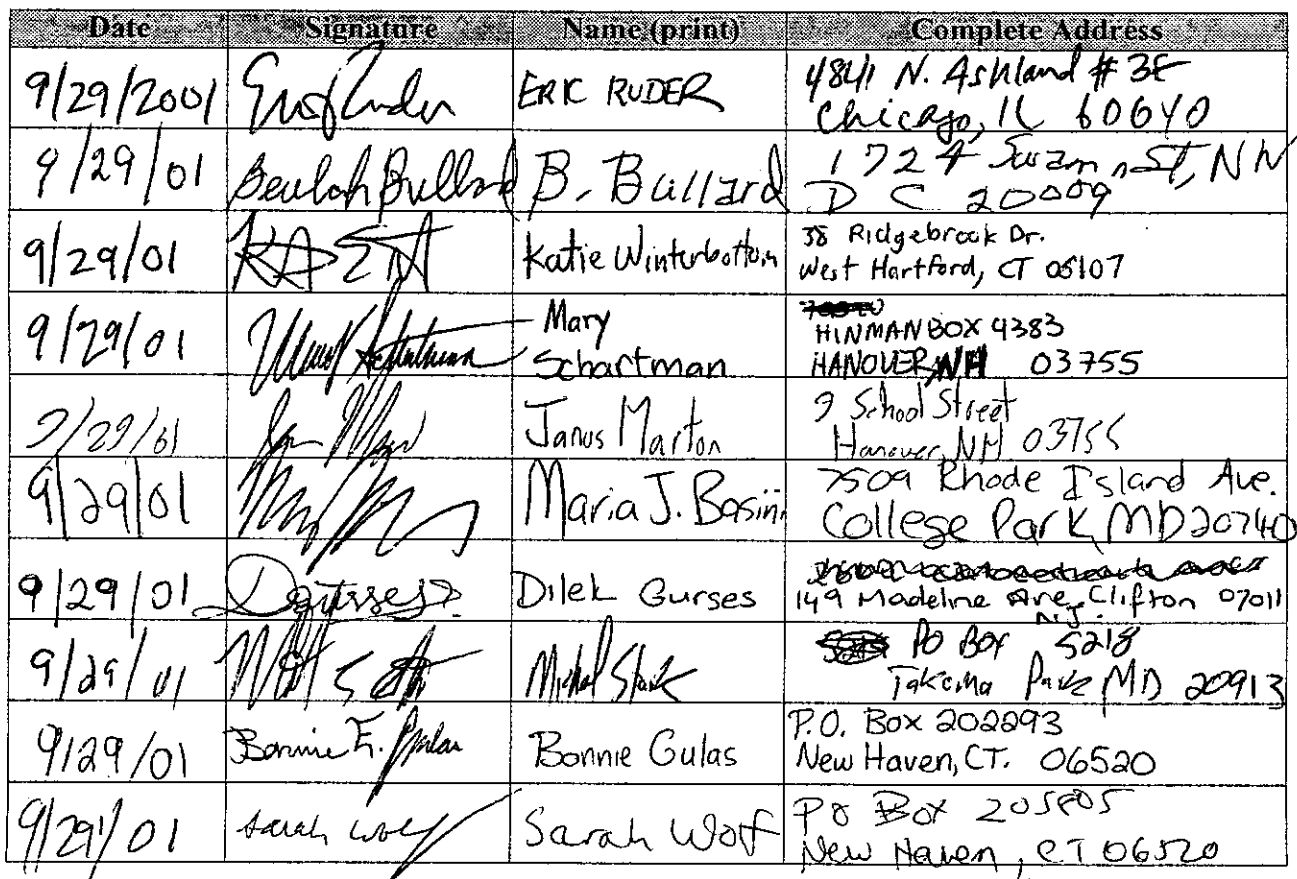 Date Signature Name (print) Complete Address
9/29/2001 Eric Ruder ERIC RUDER 4841 N. Ashland # 3E
Chicago, IL 60640
9/29/01 Beulah Bullard B. Bullard 1724 Swann St, NW
DC 20009
9/29/01 Katie Winterbottom 38 Ridgebrook Dr.
West Hartford, CT 06107
9/29/01 Mary
Schartman HINMAN BOX 4383
HANOVER, NH 03755
9/29/01 Janos Marton 9 School Street
Hanover, NH 03755
9/29/01 Maria J. Basini 7509 Rhode Island Ave.
College Park, MD 20740
9/29/01 Dilek Gurses
149 Madeline Ave, Clifton 07011
N.J.
9/29/01 PO Box 5218
Takoma Park MD 20913
9/29/01 Bonnie Gulas P.O. Box 202293
New Haven, CT. 06520
9/29/01 Sarah Wolf Sarah Wolf PO Box 205805
New Haven, CT 06520